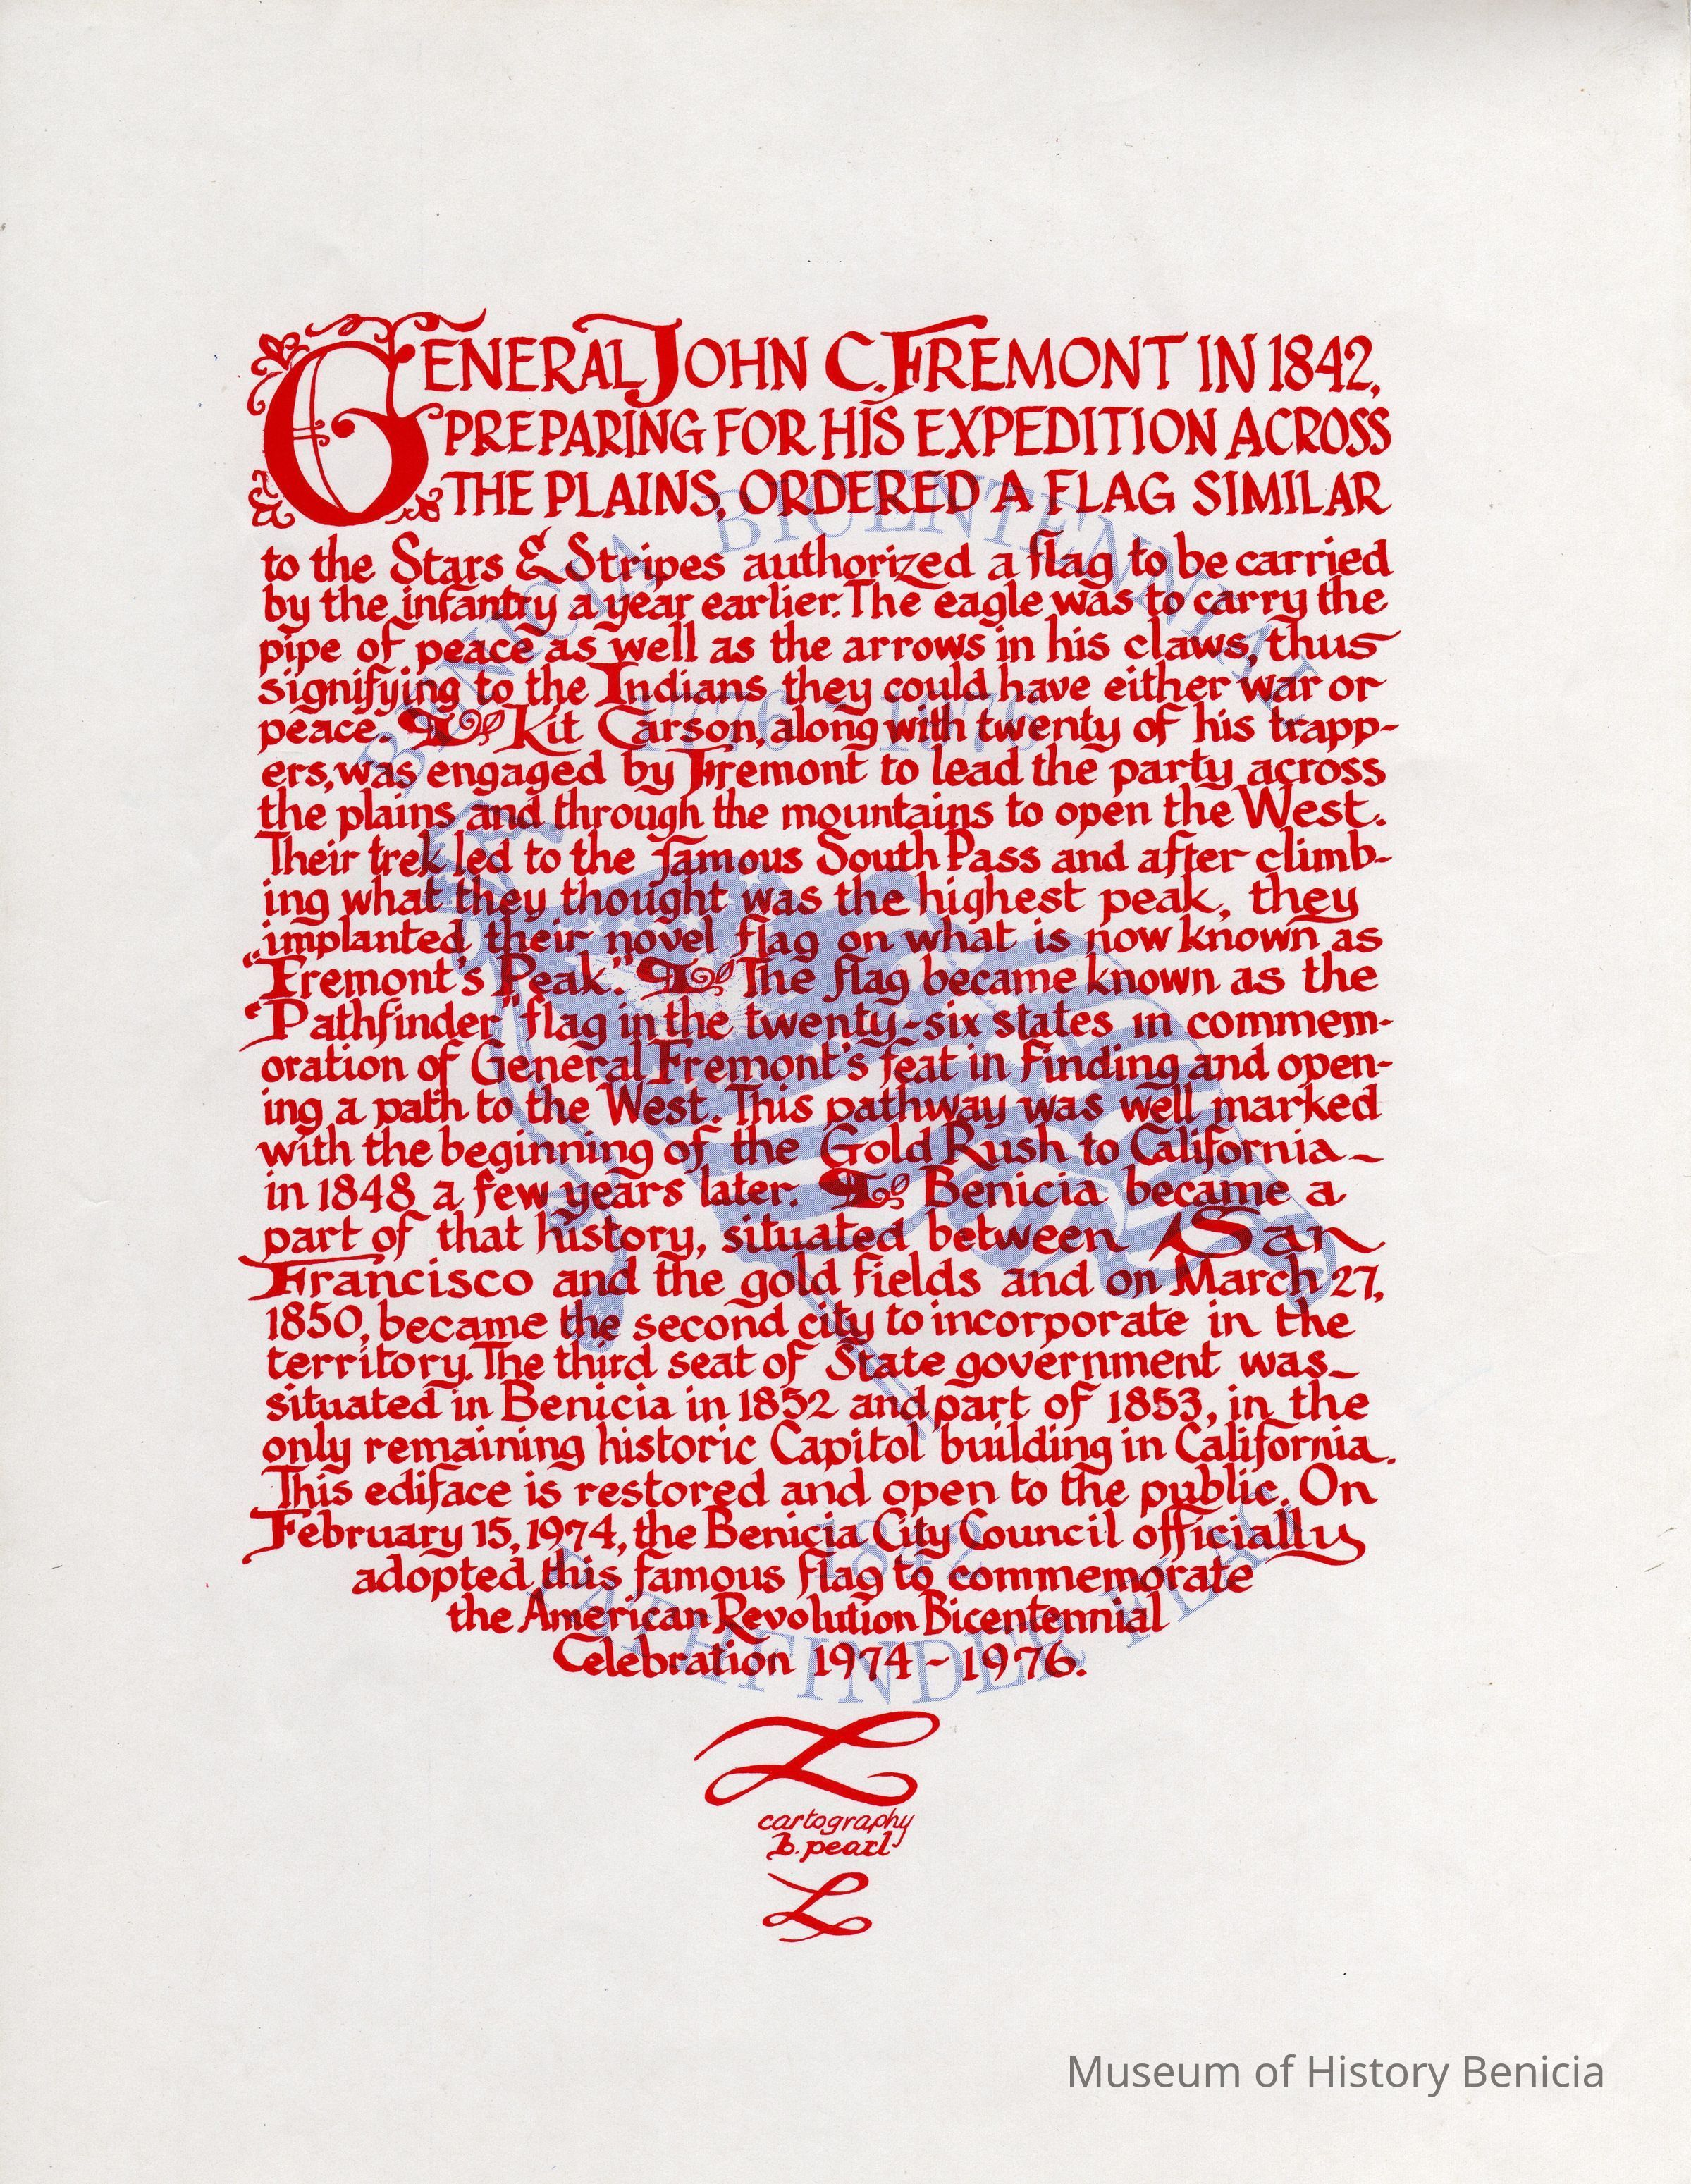 GENERAL JOHN C. FREMONT IN 1842,
PREPARING FOR HIS EXPEDITION ACROSS
THE PLAINS, ORDERED A FLAG SIMILAR
to the Stars & Stripes authorized a flag to be carried
by the infantry a year earlier. The eagle was to carry the
pipe of peace as well as the arrows in his claws, thus
signifying to the Indians they could have either war or
peace. Kit Carson, along with twenty of his trapp-
ers, was engaged by Fremont to lead the party across
the plains and through the mountains to open the West.
Their trek led to the famous South Pass and after climb-
ing what they thought was the highest peak, they
implanted their novel flag on what is now known as
"Fremont's Peak." The flag became known as the
"Pathfinder" flag in the twenty-six states in commem-
oration of General Fremont's feat in finding and open-
ing a path to the West. This pathway was well marked
with the beginning of the Gold Rush to California
in 1848 a few years later. Benicia became a
part of that history, situated between San
Francisco and the gold fields and on March 27,
1850, became the second city to incorporate in the
territory. The third seat of State government was
situated in Benicia in 1852 and part of 1853, in the
only remaining historic Capitol building in California.
This ediface is restored and open to the public. On
February 15, 1974, the Benicia City Council officially
adopted this famous flag to commemorate
the American Revolution Bicentennial
Celebration 1974-1976.
cartography
b. pearl
BENICIA BICENTENNIAL
1776 1976
1842
PATHFINDER FLAG
Museum of History Benicia